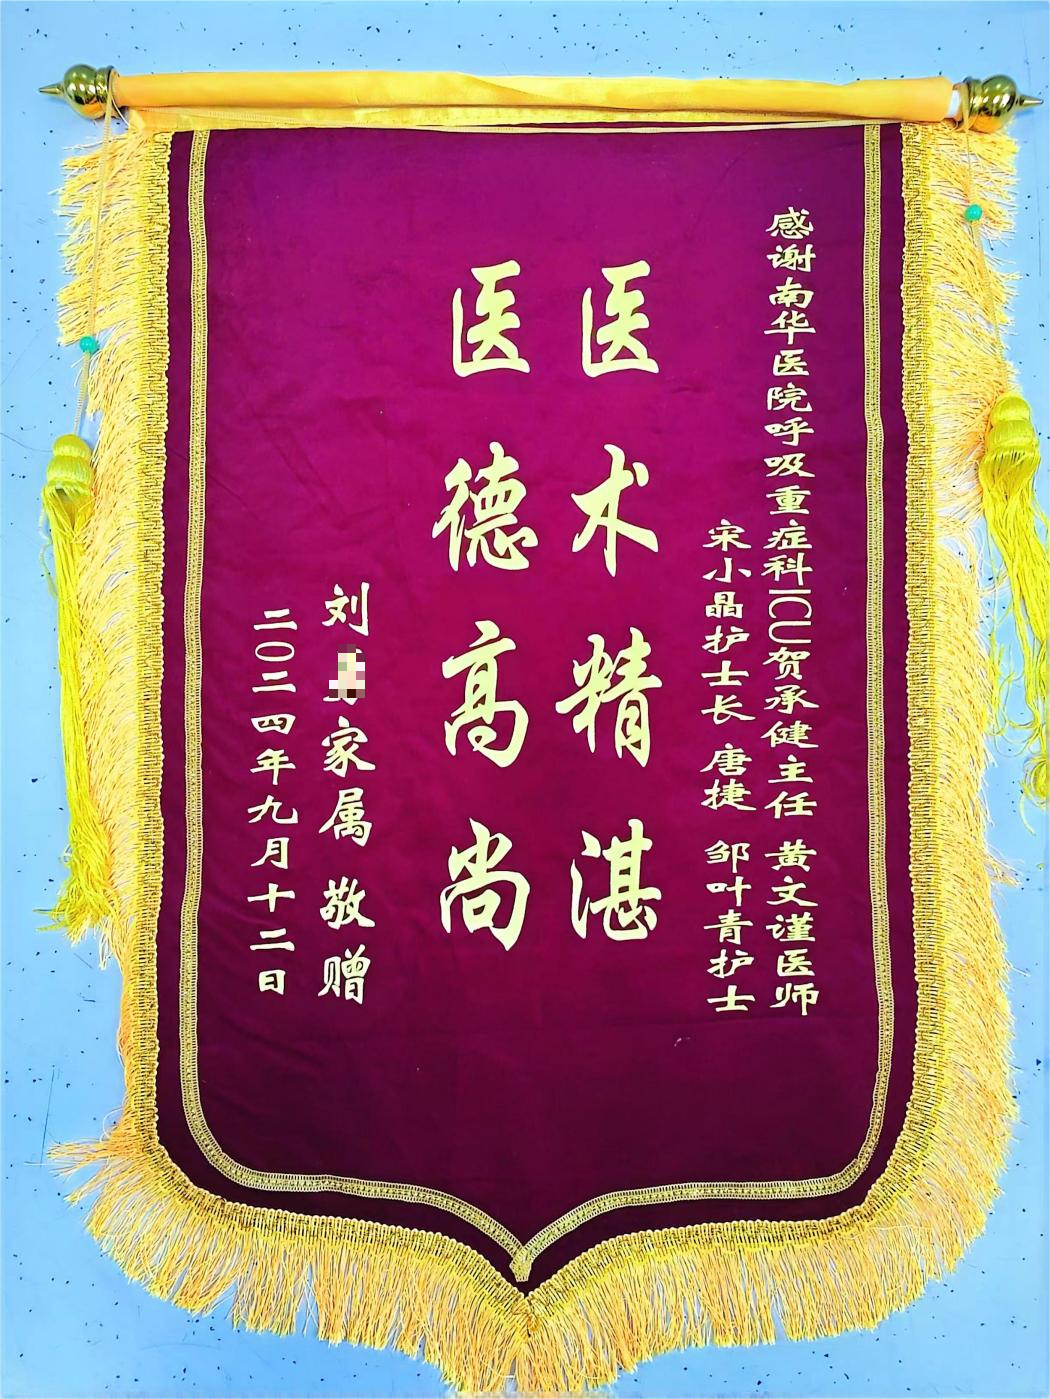 感谢南华医院呼吸重症科ICU贺承健主任 黄文谨医师
宋小晶护士长 唐捷 邹叶青护士
医术精湛
医德高尚
刘家属 敬赠
二〇二四年九月十二日